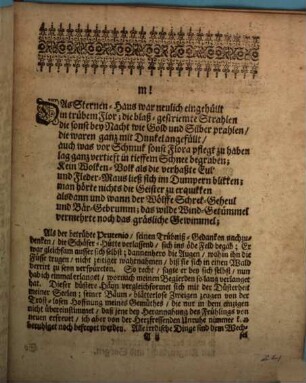 m!
DAs Sternen-Haus war neulich eingehüllt
in trübem Flor; die blaß-gestriemte Strahlen
die sonst bey Nacht wie Gold und Silber prahlen/
die waren ganz mit Dunkel angefüllt/
auch was vor Schmuk sonst Flora pflegt zu haben
lag ganz vertieft in tieffem Schnee begraben;
Kein Wolken-Volk als die verhaßte Eul
und Fleder-Maus ließ sich im Dumpern blikken;
man hörte nichts die Geister zu erquikken
alsdann und wann der Wölffe Schrek-Geheul
und Bär-Gebrumm; das wilde Wind-Getümmel
vermehrte noch das gräsliche Gewimmel;
Als der betrübte Deutenio/ seinen Trübniß-Gedanken nachzu-
henken/ die Schäfer-Hütte verlassend/ sich ins öde Feld begab; Er
war gleichsam ausser sich selbst; dannenhero die Augen/ wohin ihn die
Füsse trugen/ nicht zeigten wahrnahm/ biß sie sich in einen Wald
verirrt zu seyn verspürten. So recht/ sagte er bey sich selbst/ nun
hab ich einmal erlanget/ wornach meinen Begierden so lang verlanget
hat. Dieser düstere Hayn vergleichformet sich mit der Düsterheit
meiner Seelen; seine Blum- blätterlose Zweigen zeugen von der
Trost-losen Hoffnung meines Gemüthes/ die nur in dem einzigen
nicht übereinstimmet/ daß jene der Herannahung des Frühlings von
neuen erfreuet/ ich aber von der Herzfressenden Unruhe nimmer
beruhiget noch befreyet werden. Alle irdische Dinge sind dem Wech-